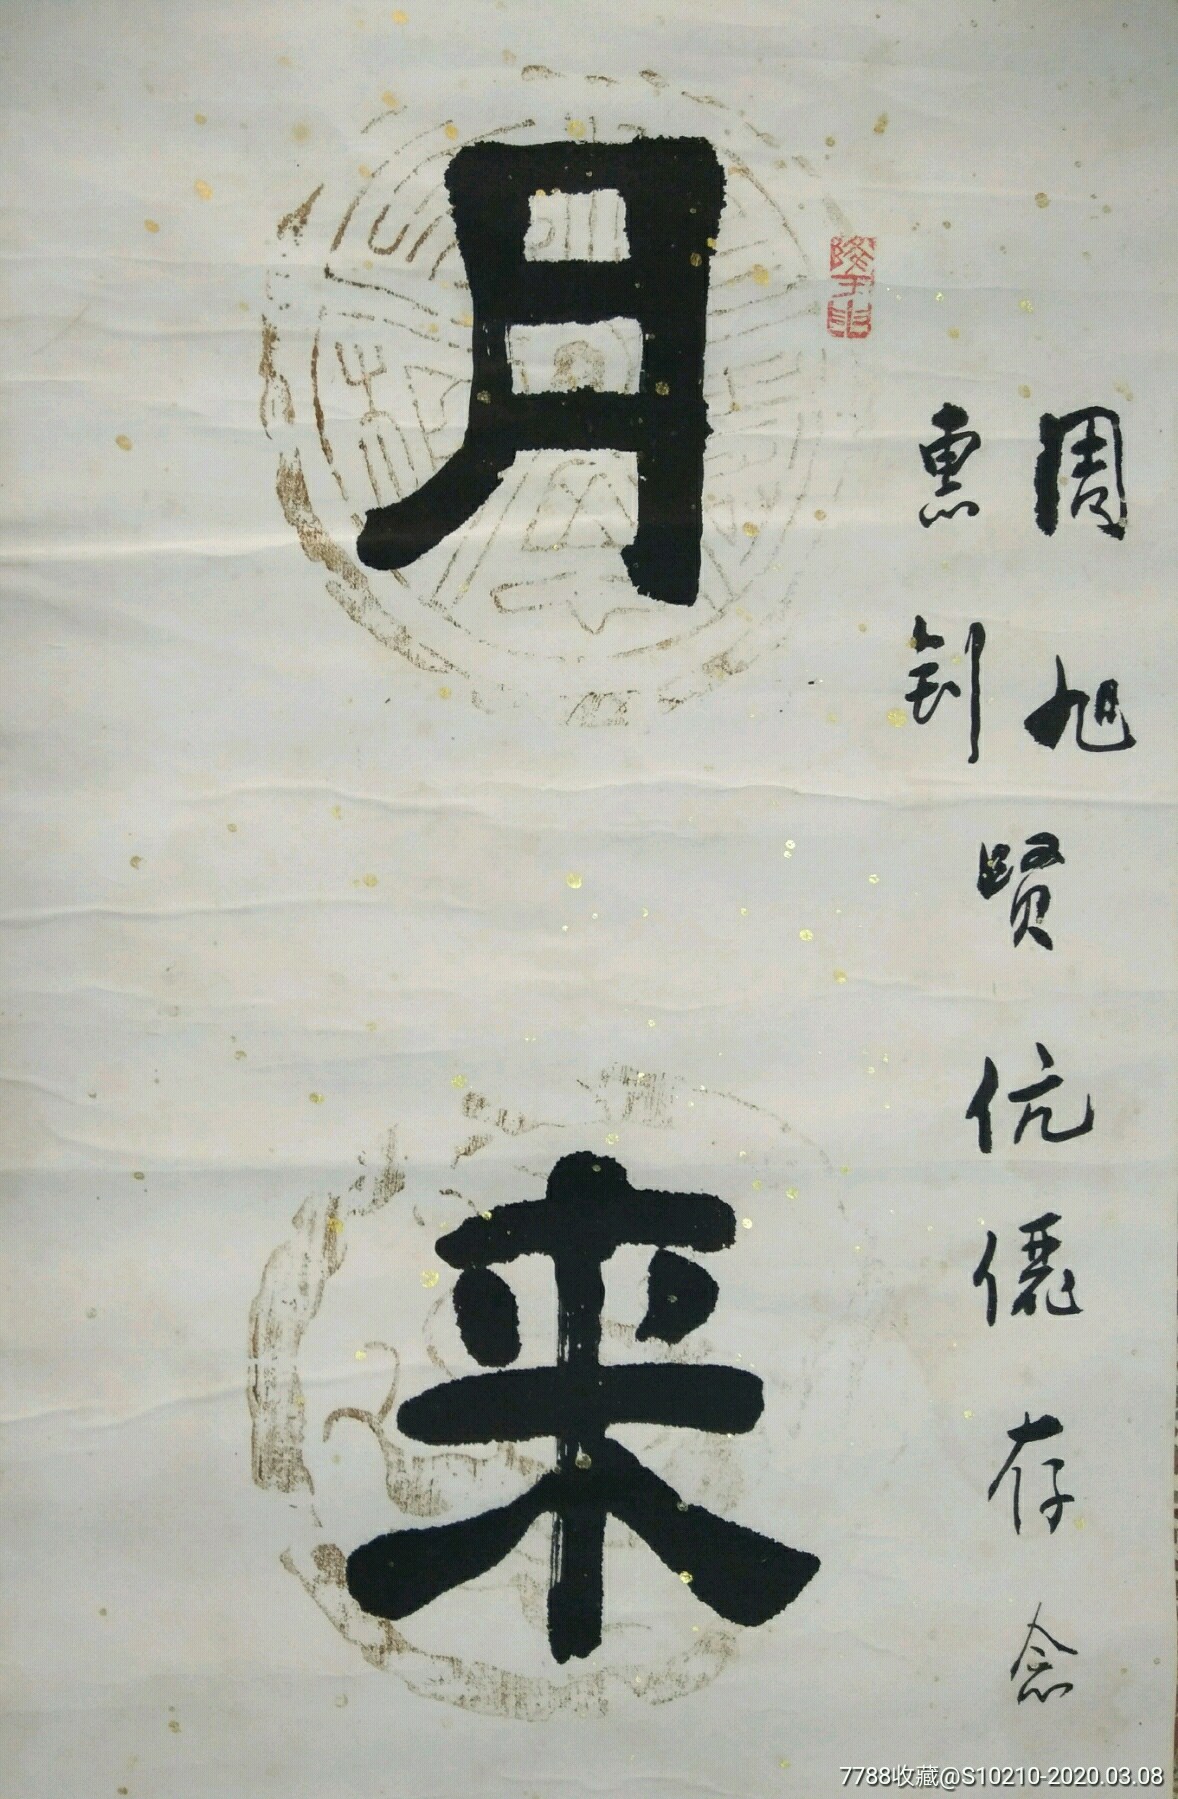 周旭贤伉俪存念
惠钊
月来
7788收藏@S10210-2020.03.08